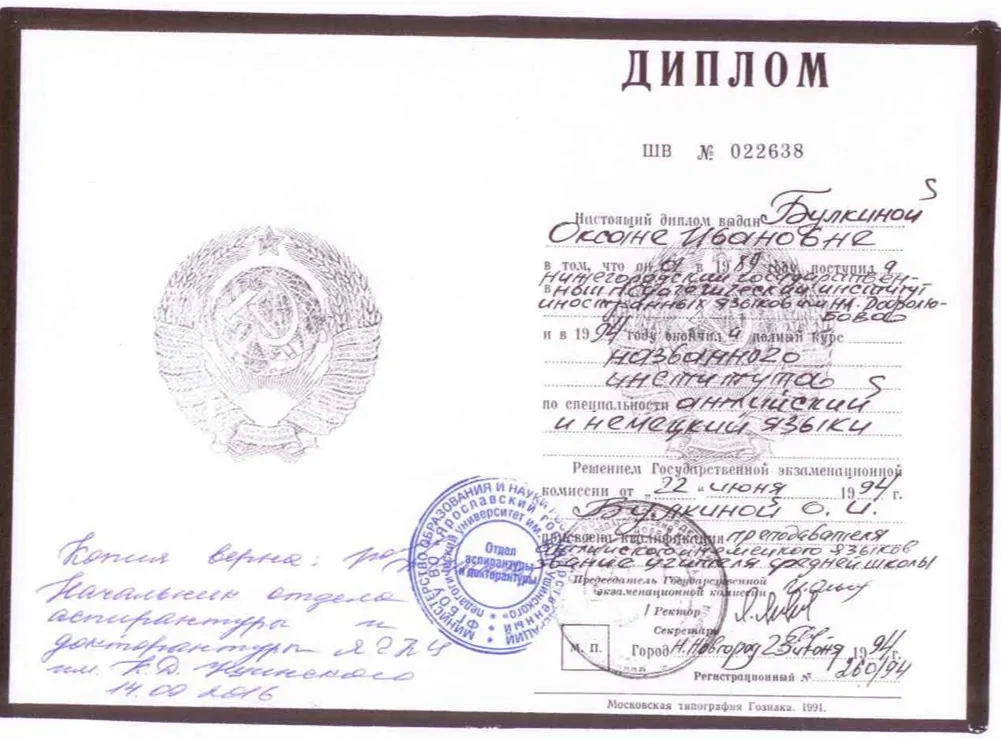 ДИПЛОМ
ШВ № 022638
Настоящий диплом выдан Булкиной
Оксане Ивановне
в том, что он а в 1989 году поступил а
в нижегородский государствен-
ный педагогический институт
иностранных языков им. Н.А. Добролю-
бова
и в 1994 году окончил а полный курс
названного
института
по специальности английский
и немецкий языки
Решением Государственной экзаменационной
комиссии от „22" июня 1994 г.
Булкиной О. И.
присвоена квалификация преподавателя
английского и немецкого языков
звание учителя средней школы
Председатель Государственной
экзаменационной комиссии
Ректор
Секретарь
М. П.
Город Н.Новгород 23 июня 1994 г.
Регистрационный № 260/94
Московская типография Гознака. 1991.
Копия верна:
Начальник отдела
аспирантуры и
докторантуры ЯГПУ
им. К.Д. Ушинского
14.09 2016
МИНИСТЕРСТВО ОБРАЗОВАНИЯ И НАУКИ
Ярославский государственный
педагогический университет им.
Отдел
аспирантуры
и докторантуры